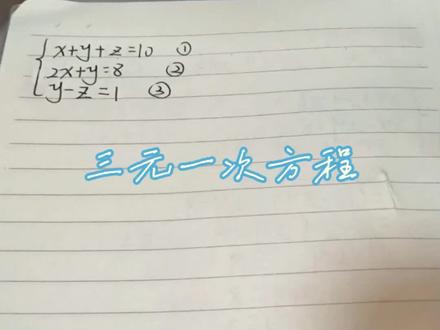 x+y+z=10 ①
2x+y=8 ②
y-z=1 ③
三元一次方程